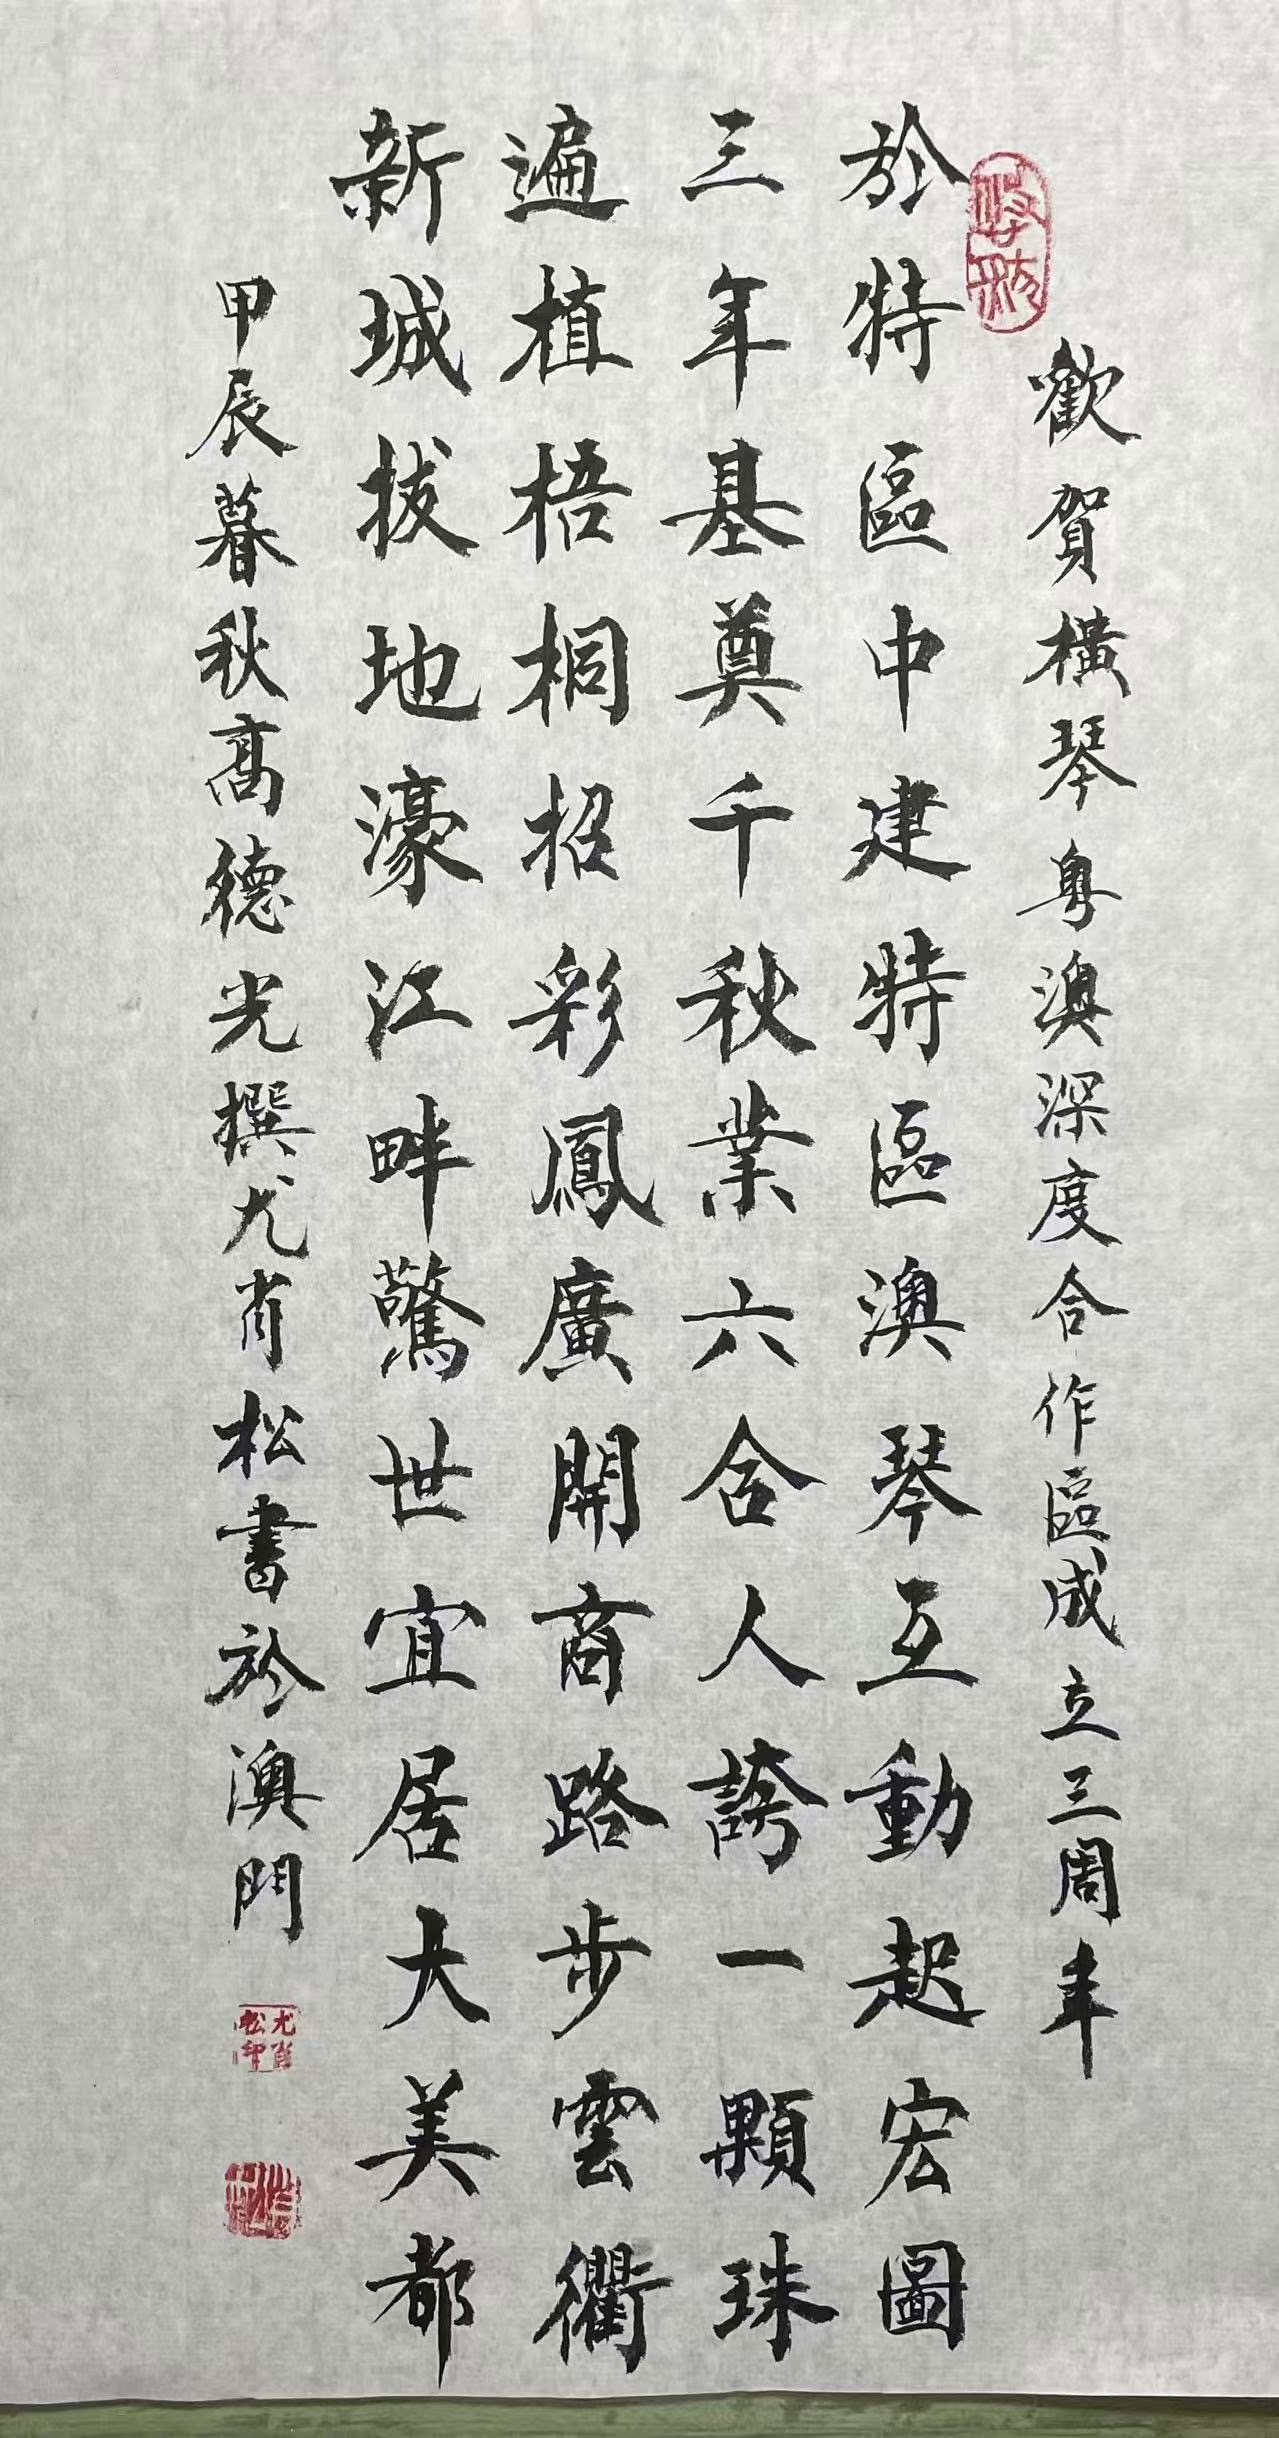 歡賀橫琴粤澳深度合作區成立三周年
於特區中建特區澳琴互動起宏圖
三年基奠千秋業六合人誇一顆珠
遍植梧桐招彩鳳廣開商路步雲衢
新城拔地濠江畔驚世宜居大美都
甲辰暮秋高德光撰尤肖松書於澳門
尤肖松印